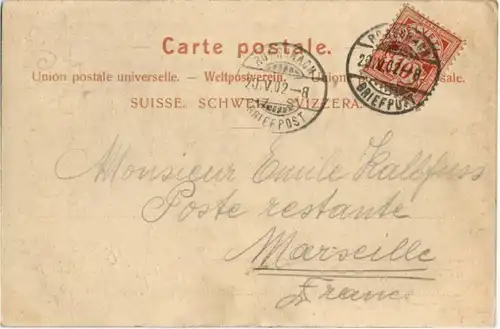 Carte postale.
Union postale universelle. – Weltpostverein. – Union postale.
SUISSE. SCHWEIZ. SVIZZERA.
RORSCHACH
29.V.02–8
BRIEFPOST
29.V.02–8
BRIEFPOST
Monsieur Emile Kalbfuss
Poste restante
Marseille
France